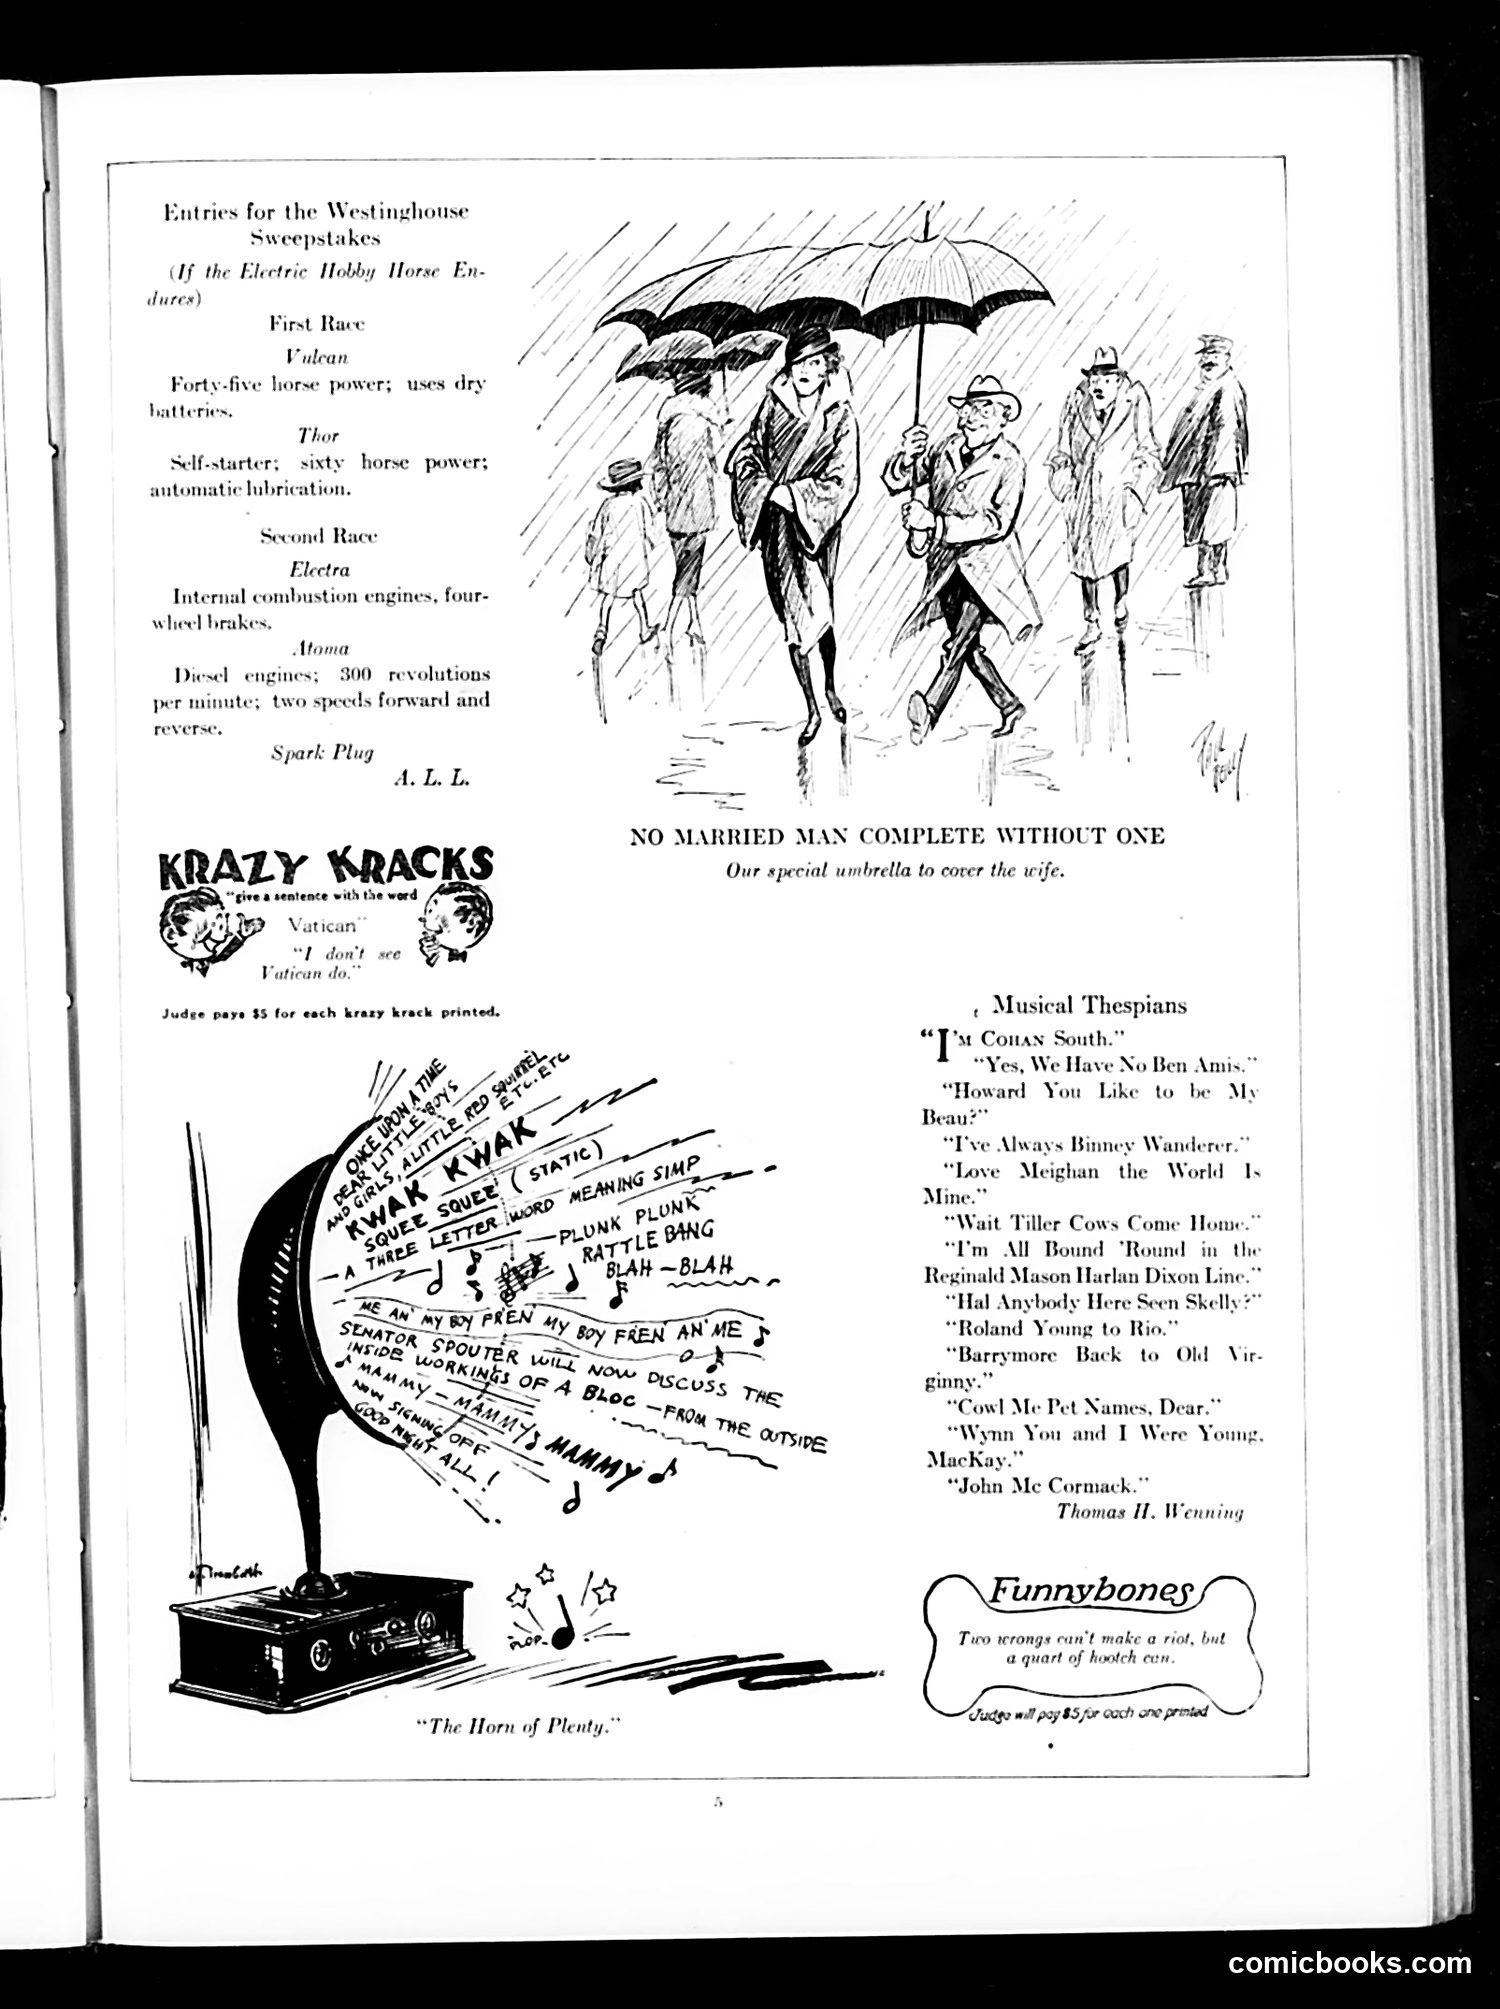 Entries for the Westinghouse
Sweepstakes
(If the Electric Hobby Horse En-
dures)
First Race
Vulcan
Forty-five horse power; uses dry
batteries.
Thor
Self-starter; sixty horse power;
automatic lubrication.
Second Race
Electra
Internal combustion engines, four-
wheel brakes.
Atoma
Diesel engines; 300 revolutions
per minute; two speeds forward and
reverse.
Spark Plug
A. L. L.
NO MARRIED MAN COMPLETE WITHOUT ONE
Our special umbrella to cover the wife.
KRAZY KRACKS
"give a sentence with the word
Vatican"
"I don't see
Vatican do."
Judge pays $5 for each krazy krack printed.
ONCE UPON A TIME
DEAR LITTLE BOYS
AND GIRLS, A LITTLE RED SQUIRREL
ETC. ETC
KWAK KWAK
SQUEE SQUEE (STATIC)
— A THREE LETTER WORD MEANING SIMP
— PLUNK PLUNK
RATTLE BANG
BLAH — BLAH
ME AN' MY BOY FREN' MY BOY FREN' AN' ME
SENATOR SPOUTER WILL NOW DISCUSS THE
INSIDE WORKINGS OF A BLOC — FROM THE OUTSIDE
MAMMY — MAMMY MAMMY
NOW SIGNING OFF
GOOD NIGHT ALL!
PLOP
"The Horn of Plenty."
Musical Thespians
"I'M COHAN South."
"Yes, We Have No Ben Amis."
"Howard You Like to be My
Beau?"
"I've Always Binney Wanderer."
"Love Meighan the World Is
Mine."
"Wait Tiller Cows Come Home."
"I'm All Bound 'Round in the
Reginald Mason Harlan Dixon Line."
"Hal Anybody Here Seen Skelly?"
"Roland Young to Rio."
"Barrymore Back to Old Vir-
ginny."
"Cowl Me Pet Names, Dear."
"Wynn You and I Were Young,
MacKay."
"John Mc Cormack."
Thomas H. Wenning
Funnybones
Two wrongs can't make a riot, but
a quart of hootch can.
Judge will pay $5 for each one printed
5
comicbooks.com